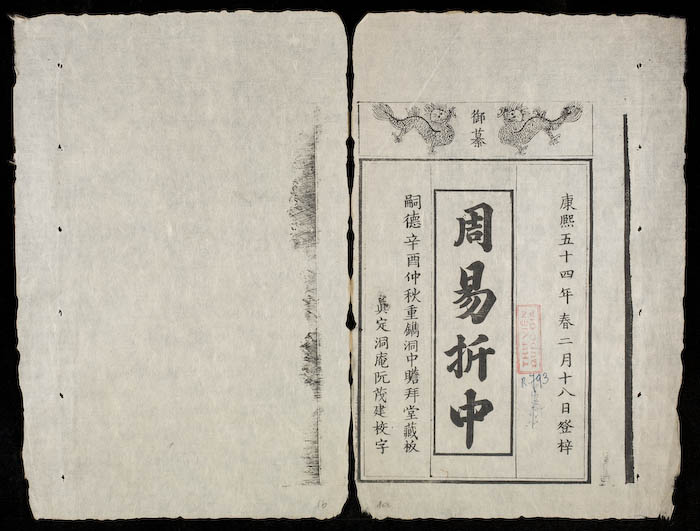 御纂
康熙五十四年春二月十八日登梓
周易折中
嗣德辛酉仲秋重鐫洞中瞻拜堂藏板
真定洞庵阮茂建校字
R.793